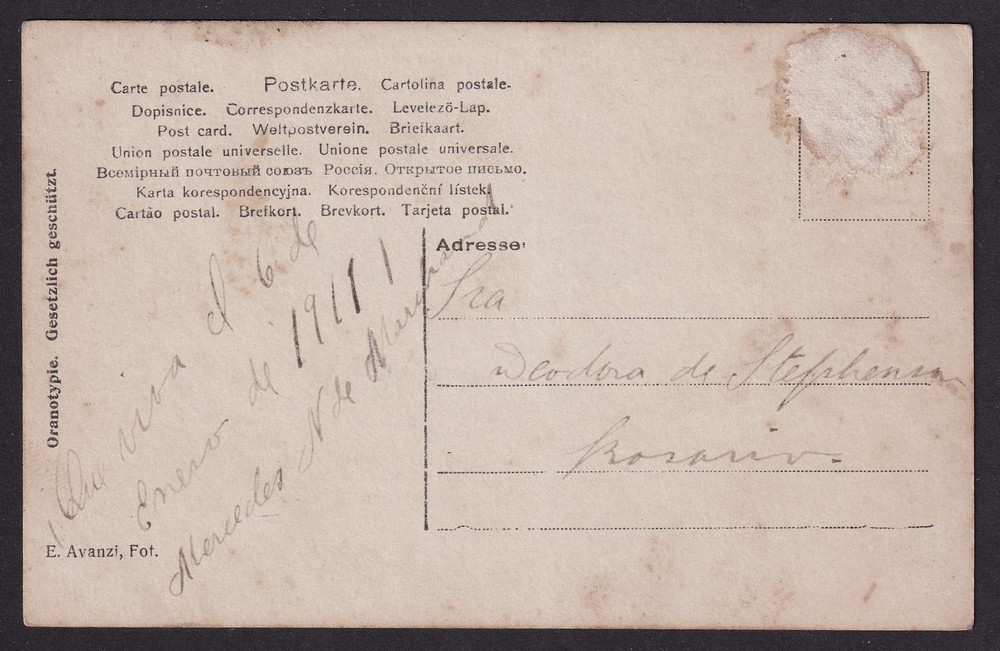 Carte postale. Postkarte. Cartolina postale.
Dopisnice. Correspondenzkarte. Levelező-Lap.
Post card. Weltpostverein. Briefkaart.
Union postale universelle. Unione postale universale.
Всемірный почтовый союзъ Россія. Открытое письмо.
Karta korespondencyjna. Korespondenční lístek.
Cartão postal. Brefkort. Brevkort. Tarjeta postal.
Oranotypie. Gesetzlich geschützt.
¡Que viva el 6 de
Enero de 1911!
Mercedes N de
E. Avanzi, Fot.
Adresse:
Sra
Deodora de Stephenson
Rosario.